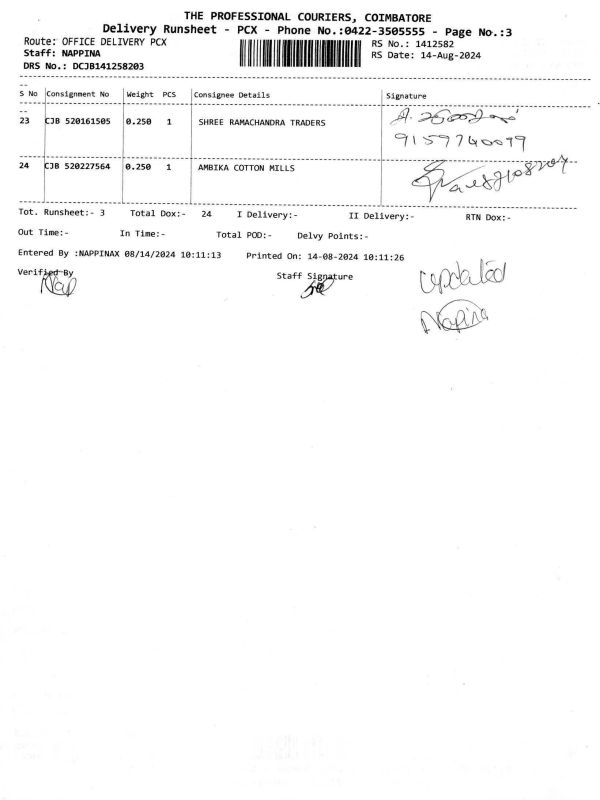 THE PROFESSIONAL COURIERS, COIMBATORE
Delivery Runsheet - PCX - Phone No.:0422-3505555 - Page No.:3
Route: OFFICE DELIVERY PCX
RS No.: 1412582
Staff: NAPPINA
RS Date: 14-Aug-2024
DRS No.: DCJB141258203
S No Consignment No Weight PCS Consignee Details Signature
23 CJB 520161505 0.250 1 SHREE RAMACHANDRA TRADERS
9159740099
24 CJB 520227564 0.250 1 AMBIKA COTTON MILLS
Tot. Runsheet:- 3 Total Dox:- 24 I Delivery:- II Delivery:- RTN Dox:-
Out Time:- In Time:- Total POD:- Delvy Points:-
Entered By :NAPPINAX 08/14/2024 10:11:13 Printed On: 14-08-2024 10:11:26
Verified By Staff Signature
Nap
Updated
Napina